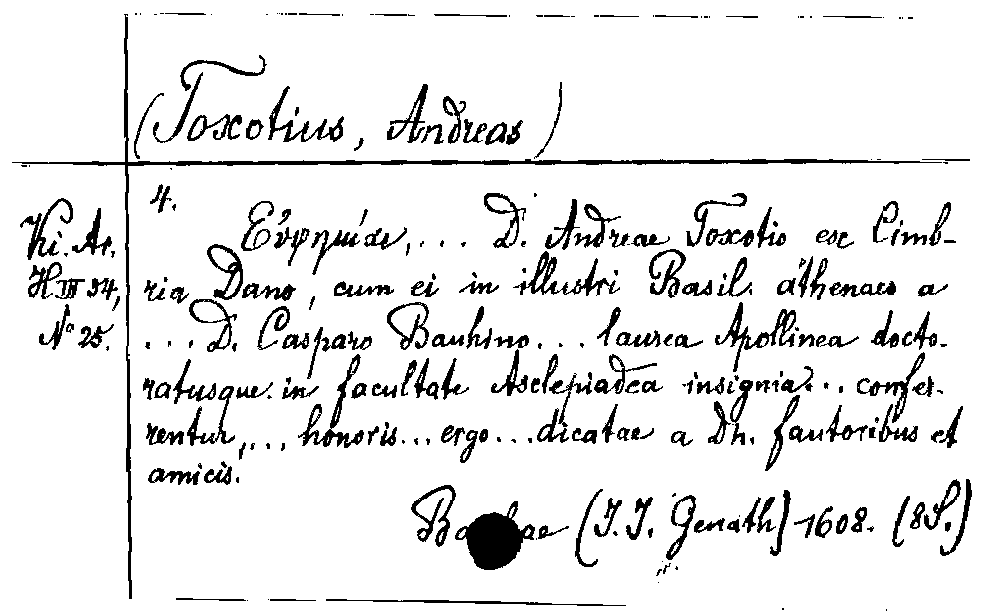 (Toxotius, Andreas)
4.
Ki. Ar.
H III 34,
No 25.
Εὐφημίαι, ... D. Andreae Toxotio ex Cimb-
ria Dano, cum ei in illustri Basil. athenaeo a
... D. Casparo Bauhino ... laurea Apollinea docto-
ratusque in facultate Asclepiadea insignia ... confer-
rentur, ... honoris ... ergo ... dicatae a Dn. fautoribus et
amicis.
(J. J. Genath) 1608. (8S.)